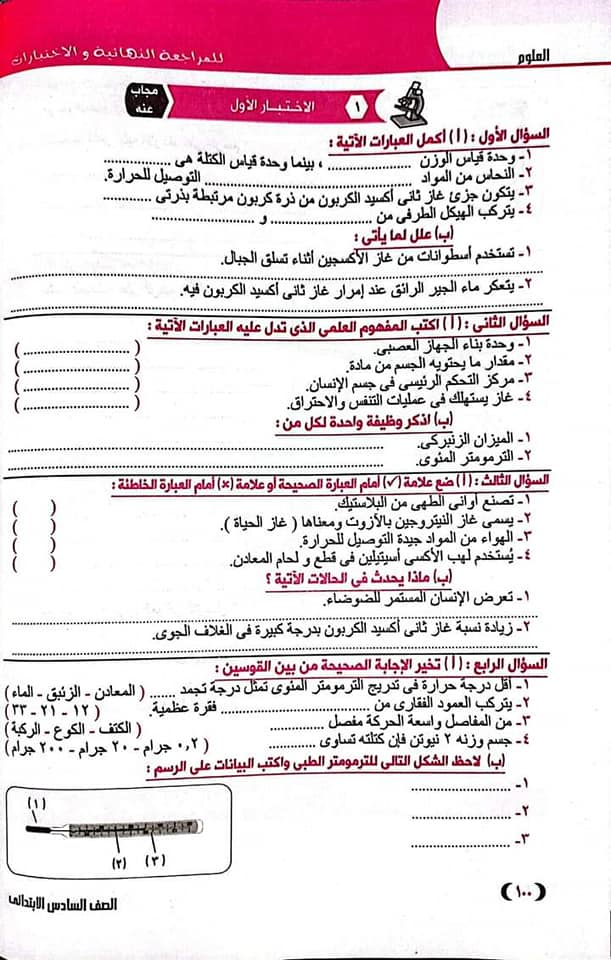 العلوم
للمراجعة النهائية و الاختبارات
١ الاختبار الأول مجاب عنه
السؤال الأول : (أ) أكمل العبارات الآتية :
١- وحدة قياس الوزن .................... ، بينما وحدة قياس الكتلة هى ....................
٢- النحاس من المواد .................... التوصيل للحرارة.
٣- يتكون جزئ غاز ثانى أكسيد الكربون من ذرة كربون مرتبطة بذرتى ............
٤- يتركب الهيكل الطرفى من .................... و ....................
(ب) علل لما يأتى :
١- تستخدم أسطوانات من غاز الأكسجين أثناء تسلق الجبال.
٢- يتعكر ماء الجير الرائق عند إمرار غاز ثانى أكسيد الكربون فيه.
السؤال الثانى : (أ) اكتب المفهوم العلمى الذى تدل عليه العبارات الآتية :
١- وحدة بناء الجهاز العصبى. (....................)
٢- مقدار ما يحتويه الجسم من مادة. (....................)
٣- مركز التحكم الرئيسى فى جسم الإنسان. (....................)
٤- غاز يستهلك فى عمليات التنفس والاحتراق. (....................)
(ب) اذكر وظيفة واحدة لكل من :
١- الميزان الزنبركى. ....................
٢- الترمومتر المئوى. ....................
السؤال الثالث : (أ) ضع علامة (✓) أمام العبارة الصحيحة أو علامة (×) أمام العبارة الخاطئة :
١- تصنع أوانى الطهى من البلاستيك. ( )
٢- يسمى غاز النيتروجين بالأزوت ومعناها ( غاز الحياة ). ( )
٣- الهواء من المواد جيدة التوصيل للحرارة. ( )
٤- يُستخدم لهب الأكسى أسيتيلين فى قطع و لحام المعادن. ( )
(ب) ماذا يحدث فى الحالات الآتية ؟
١- تعرض الإنسان المستمر للضوضاء.
٢- زيادة نسبة غاز ثانى أكسيد الكربون بدرجة كبيرة فى الغلاف الجوى.
السؤال الرابع : (أ) تخير الإجابة الصحيحة من بين القوسين :
١- أقل درجة حرارة فى تدريج الترمومتر المئوى تمثل درجة تجمد ...... ( المعادن - الزئبق - الماء )
٢- يتركب العمود الفقارى من .................... فقرة عظمية. ( ١٢ - ٢١ - ٣٣ )
٣- من المفاصل واسعة الحركة مفصل ............ ( الكتف - الكوع - الركبة )
٤- جسم وزنه ٢ نيوتن فإن كتلته تساوى ............ ( ٠,٢ جرام - ٢٠ جرام - ٢٠٠ جرام )
(ب) لاحظ الشكل التالى للترمومتر الطبى واكتب البيانات على الرسم :
١- ....................
٢- ....................
٣- ....................
(١)
(٢) (٣)
(١٠٠)
الصف السادس الابتدائى